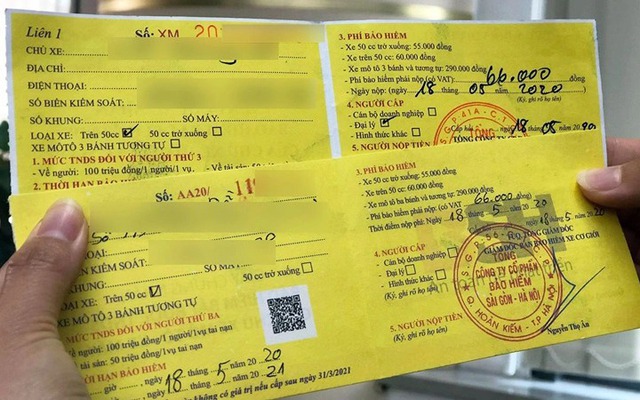 Liên 1
Số: XM 20
CHỦ XE:
ĐỊA CHỈ:
ĐIỆN THOẠI:
SỐ BIỂN KIỂM SOÁT:
SỐ KHUNG: SỐ MÁY:
LOẠI XE: Trên 50cc 50 cc trở xuống:
XE MÔTÔ 3 BÁNH TƯƠNG TỰ
1. MỨC TNDS ĐỐI VỚI NGƯỜI THỨ 3
- Về người: 100 triệu đồng/1 người/1 vụ. - Về tài sản:
2. THỜI HẠN BẢO
3. PHÍ BẢO HIỂM
- Xe 50 cc trở xuống: 55.000 đồng
- Xe trên 50 cc: 60.000 đồng
- Xe mô tô 3 bánh và tương tự: 290.000 đồng
- Phí bảo hiểm phải nộp (có VAT): 66.000 đồng
- Ngày nộp: ngày 18 tháng 05 năm 2020
4. NGƯỜI CẤP
- Cán bộ doanh nghiệp
- Đại lý
- Hình thức khác:
(Ký, ghi rõ họ tên)
5. NGƯỜI NỘP TIỀN
18 tháng 05
TỔNG
Số: AA20/
KIỂM SOÁT:
KHUNG: SỐ MÁY
LOẠI XE: Trên 50 cc 50 cc trở xuống:
XE MÔ TÔ 3 BÁNH TƯƠNG TỰ
MỨC TNDS ĐỐI VỚI NGƯỜI THỨ BA
người: 100 triệu đồng/1 người/1vụ tai nạn
tài sản: 50 triệu đồng/1 vụ tai nạn
HẠN BẢO HIỂM
giờ, ngày 18 tháng 5 năm 2020
ngày 18 tháng 5 năm 2021
không có giá trị nếu cấp sau ngày 31/3/2021
3. PHÍ BẢO HIỂM
- Xe 50 cc trở xuống: 55.000 đồng
- Xe trên 50 cc: 60.000 đồng
- Xe mô tô ba bánh và tương tự: 290.000 đồng
- Phí bảo hiểm phải nộp: (có VAT 66.000 đồng
Thời điểm nộp phí: Ngày 18 tháng 5 năm 2020
ngày 18 tháng 5 năm 2020
4. NGƯỜI CẤP
- Cán bộ doanh nghiệp
- Đại lý
- Hình thức khác:
(Ký, ghi rõ họ tên)
TỔNG GIÁM ĐỐC
GIÁM ĐỐC BAN BẢO HIỂM XE CƠ GIỚI
TỔNG
CÔNG TY CỔ PHẦN
BẢO HIỂM
SÀI GÒN - HÀ NỘI
Q. HOÀN KIẾM - T.P HÀ NỘI
5. NGƯỜI NỘP TIỀN
(Ký, ghi rõ họ tên)
Nguyễn Thọ Ân